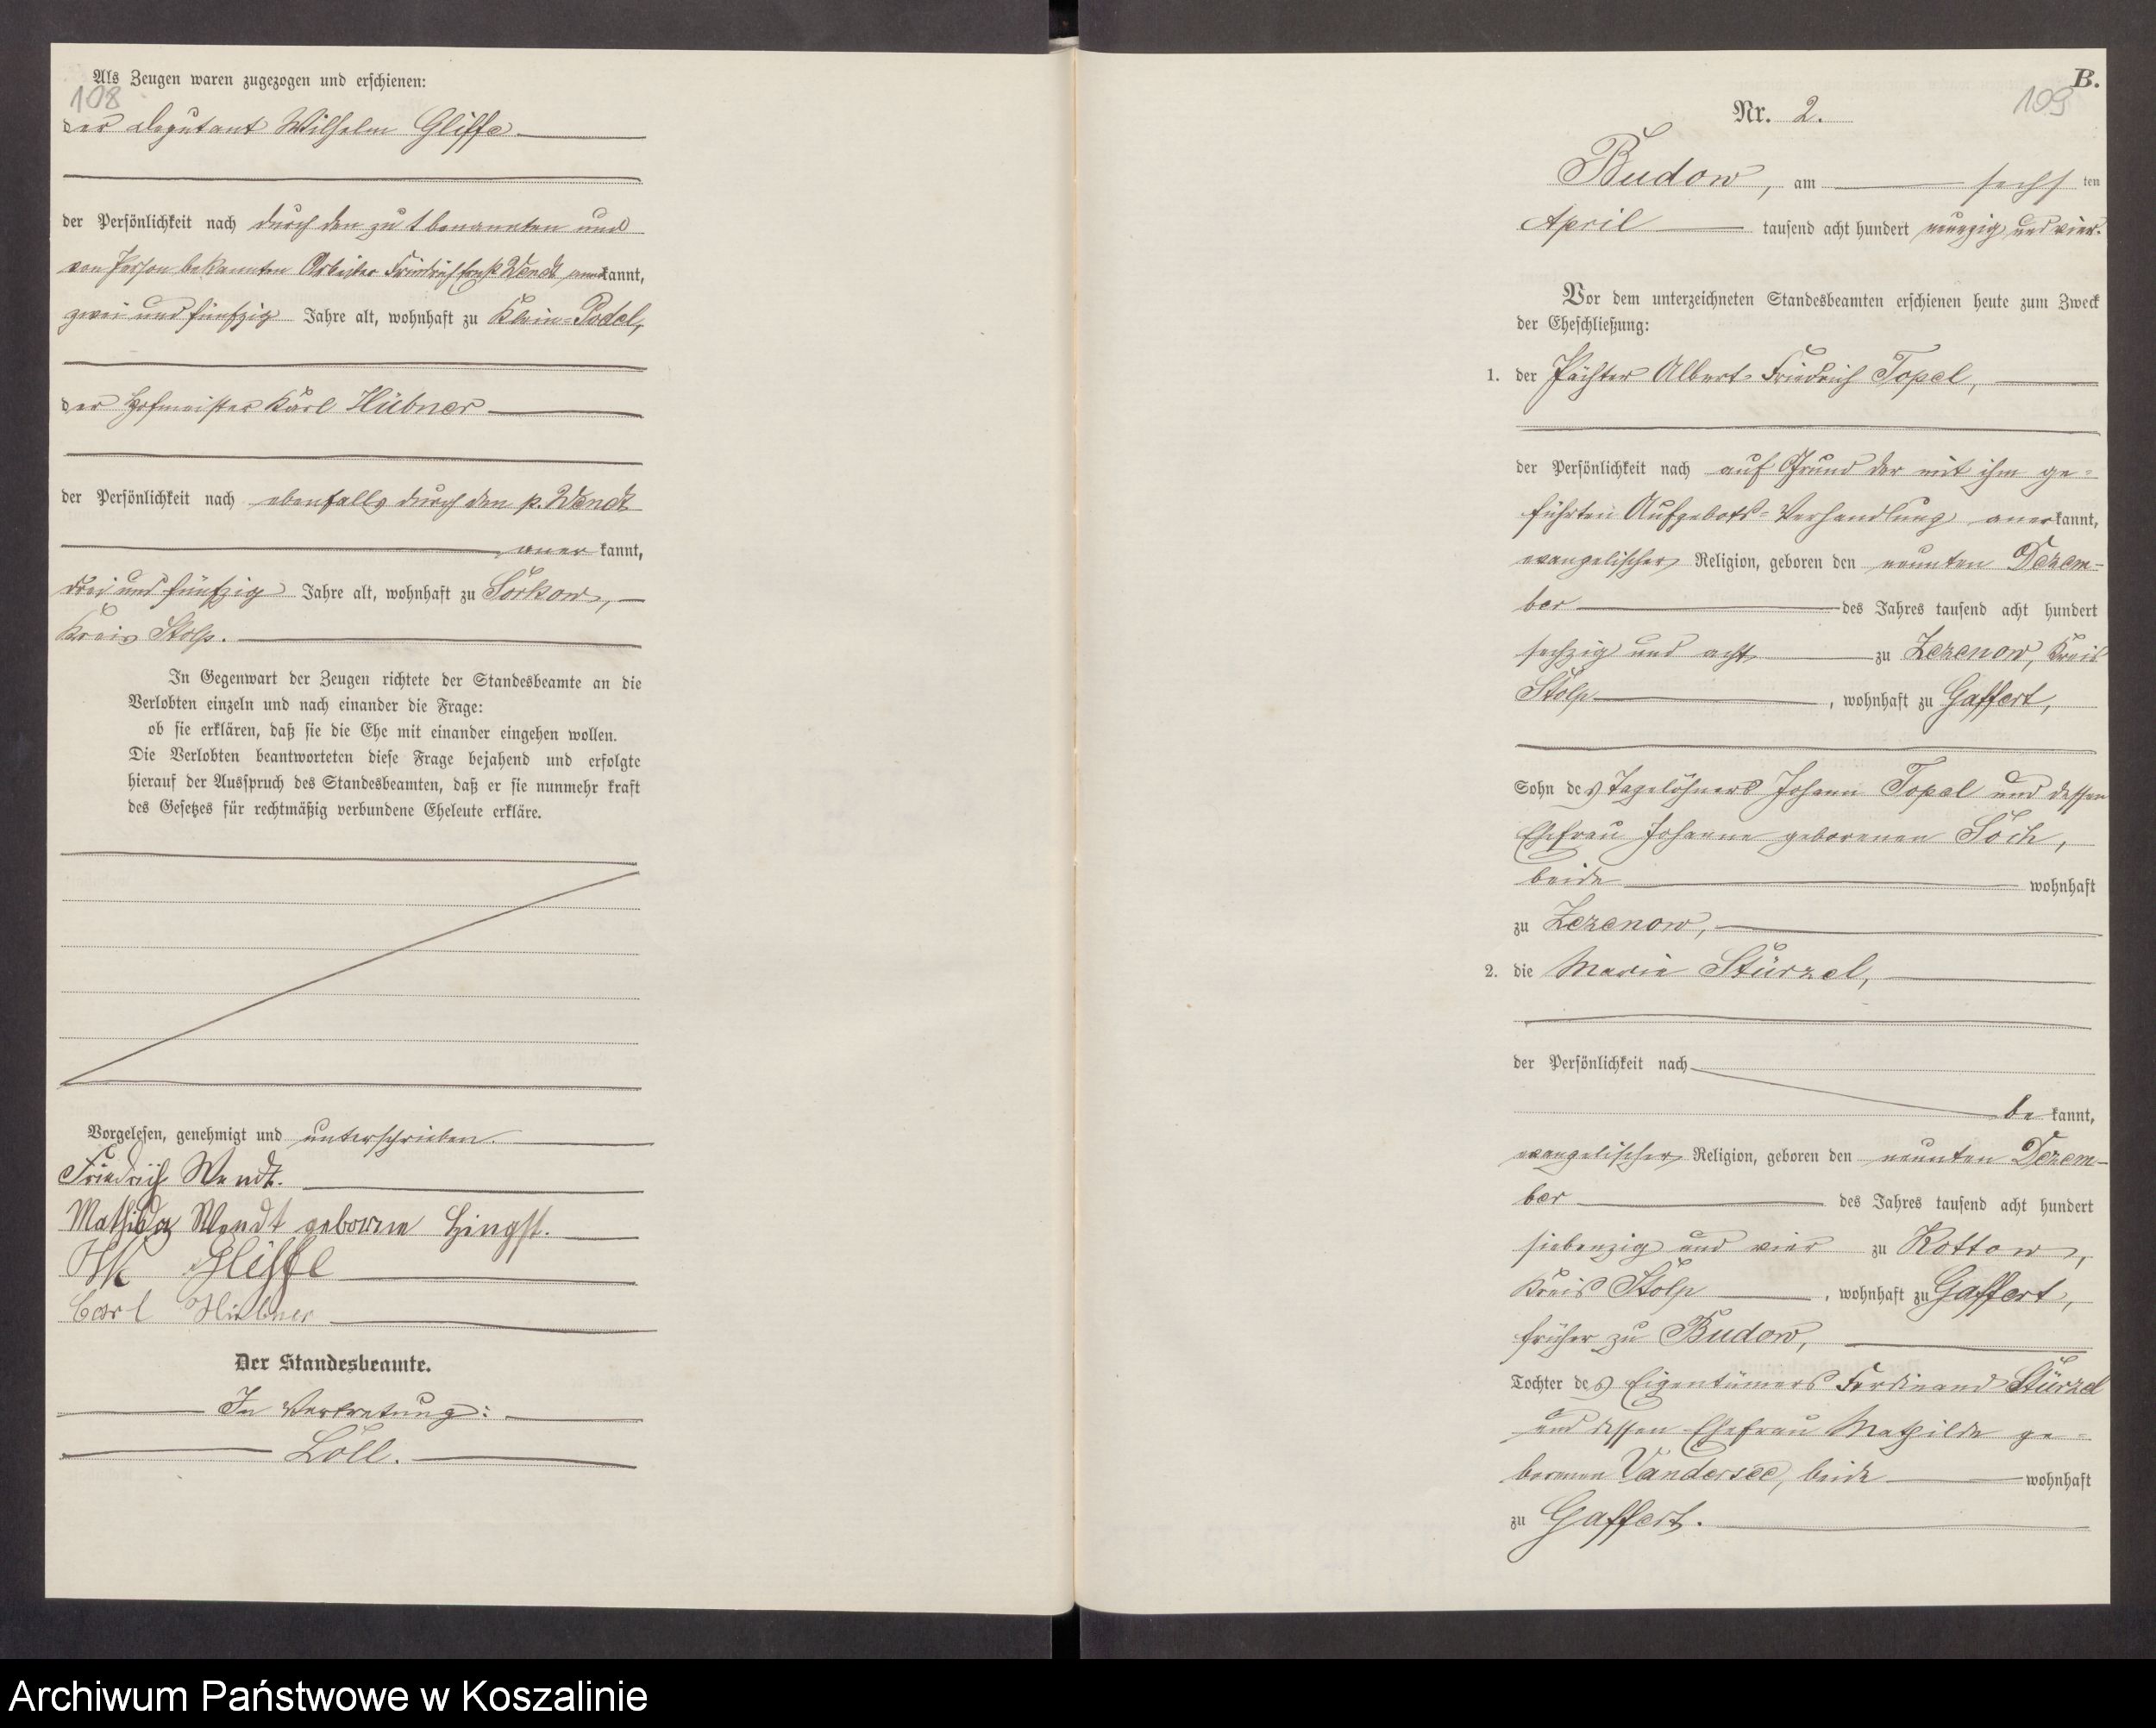 Als Zeugen waren zugezogen und erschienen:
108
der Deputant Wilhelm Gliffe
der Persönlichkeit nach durch den zu 1 benannten und
von Person bekannten Arbeiter Friedrich Wendt anerkannt,
zwei und fünfzig Jahre alt, wohnhaft zu Klein-Podel,
der Hofmeister Karl Hübner
der Persönlichkeit nach ebenfalls durch den p. Wendt
anerkannt,
drei und fünfzig Jahre alt, wohnhaft zu Sorkow,
Kreis Stolp.
In Gegenwart der Zeugen richtete der Standesbeamte an die
Verlobten einzeln und nach einander die Frage:
ob sie erklären, daß sie die Ehe mit einander eingehen wollen.
Die Verlobten beantworteten diese Frage bejahend und erfolgte
hierauf der Ausspruch des Standesbeamten, daß er sie nunmehr kraft
des Gesetzes für rechtmäßig verbundene Eheleute erkläre.
Vorgelesen, genehmigt und unterschrieben.
Friedrich Wendt.
Mathilda Wendt geborne Hingst.
Gliffe
Carl Hübner
Der Standesbeamte.
In Vertretung:
Löll.
B.
109
Nr. 2.
Budow, am sechsten
April tausend acht hundert neunzig und vier.
Vor dem unterzeichneten Standesbeamten erschienen heute zum Zweck
der Eheschließung:
1. der Pächter Albert Friedrich Topel,
der Persönlichkeit nach auf Grund der mit ihm ge-
führten Aufgebots-Verhandlung anerkannt,
evangelischer Religion, geboren den neunten Dezem-
ber des Jahres tausend acht hundert
sechzig und acht zu Zezenow, Kreis
Stolp, wohnhaft zu Gaffert,
Sohn des Tagelöhners Johann Topel und dessen
Ehefrau Johanne geborenen Soch,
beide wohnhaft
zu Zezenow,
2. die Marie Stürzel,
der Persönlichkeit nach
bekannt,
evangelischer Religion, geboren den neunten Dezem-
ber des Jahres tausend acht hundert
siebenzig und vier zu Kottow,
Kreis Stolp, wohnhaft zu Gaffert,
früher zu Budow,
Tochter des Eigentümers Ferdinand Stürzel
und dessen Ehefrau Mathilde ge-
borenen Vandersee, beide wohnhaft
zu Gaffert.
Archiwum Państwowe w Koszalinie